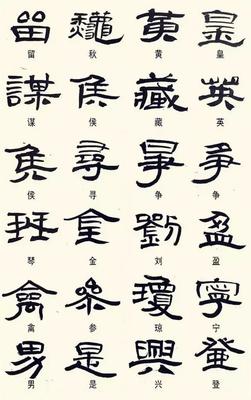 留 龝 黃 皇
留 秋 黄 皇
謀 侯 藏 英
谋 侯 藏 英
侯 尋 爭 爭
侯 寻 争 争
琴 金 劉 盈
琴 金 刘 盈
禽 參 瓊 寧
禽 参 琼 宁
男 是 興 登
男 是 兴 登